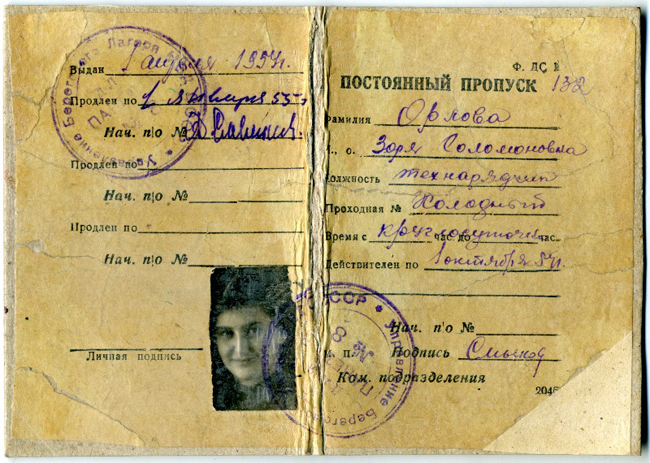 Выдан 1 апреля 1954г.
Продлен по 1 января 55 г
Нач. п/о №
Продлен по
Нач. п/о №
Продлен по
Нач. п/о №
Личная подпись
Ф. ЛС
ПОСТОЯННЫЙ ПРОПУСК 132
Фамилия Орлова
И., о. Зоря Соломоновна
Должность технарядчик
Проходная № Холодный
Время с круглосуточн час до час.
Действителен по 1 октября 54г.
Нач. п/о №
м. п. Подпись
Ком. подразделения
Управление Берегового Лагеря
СССР * Управление
№ 8